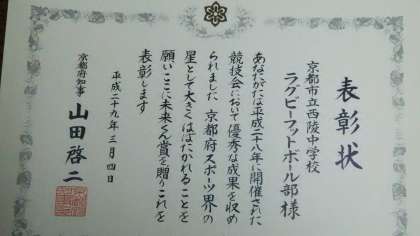 表彰状
京都市立西陵中学校
ラグビーフットボール部様
あなたがたは平成二十八年に開催された
競技会において優秀な成果を収め
られました 京都府スポーツ界の
星として大きくはばたかれることを
願いここに未来くん賞を贈りこれを
表彰します
平成二十九年三月四日
京都府知事 山田啓二